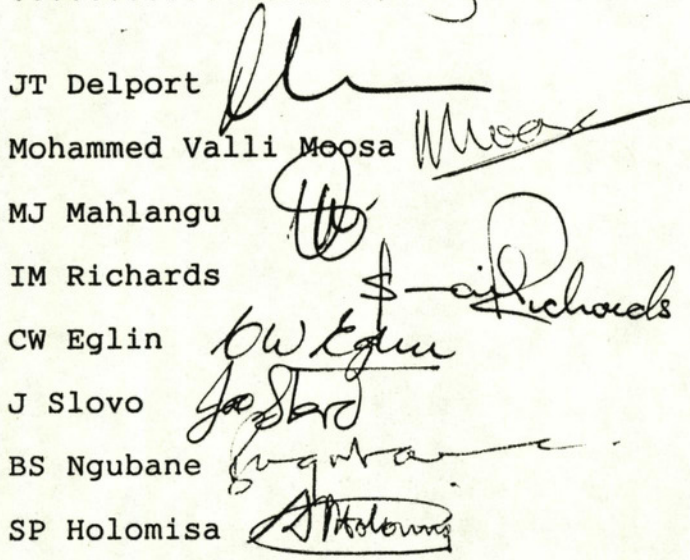 JT Delport
Mohammed Valli Moosa WMoosa
MJ Mahlangu
IM Richards Richards
CW Eglin CW Eglin
J Slovo Joe Slovo
BS Ngubane
SP Holomisa SPHolomisa